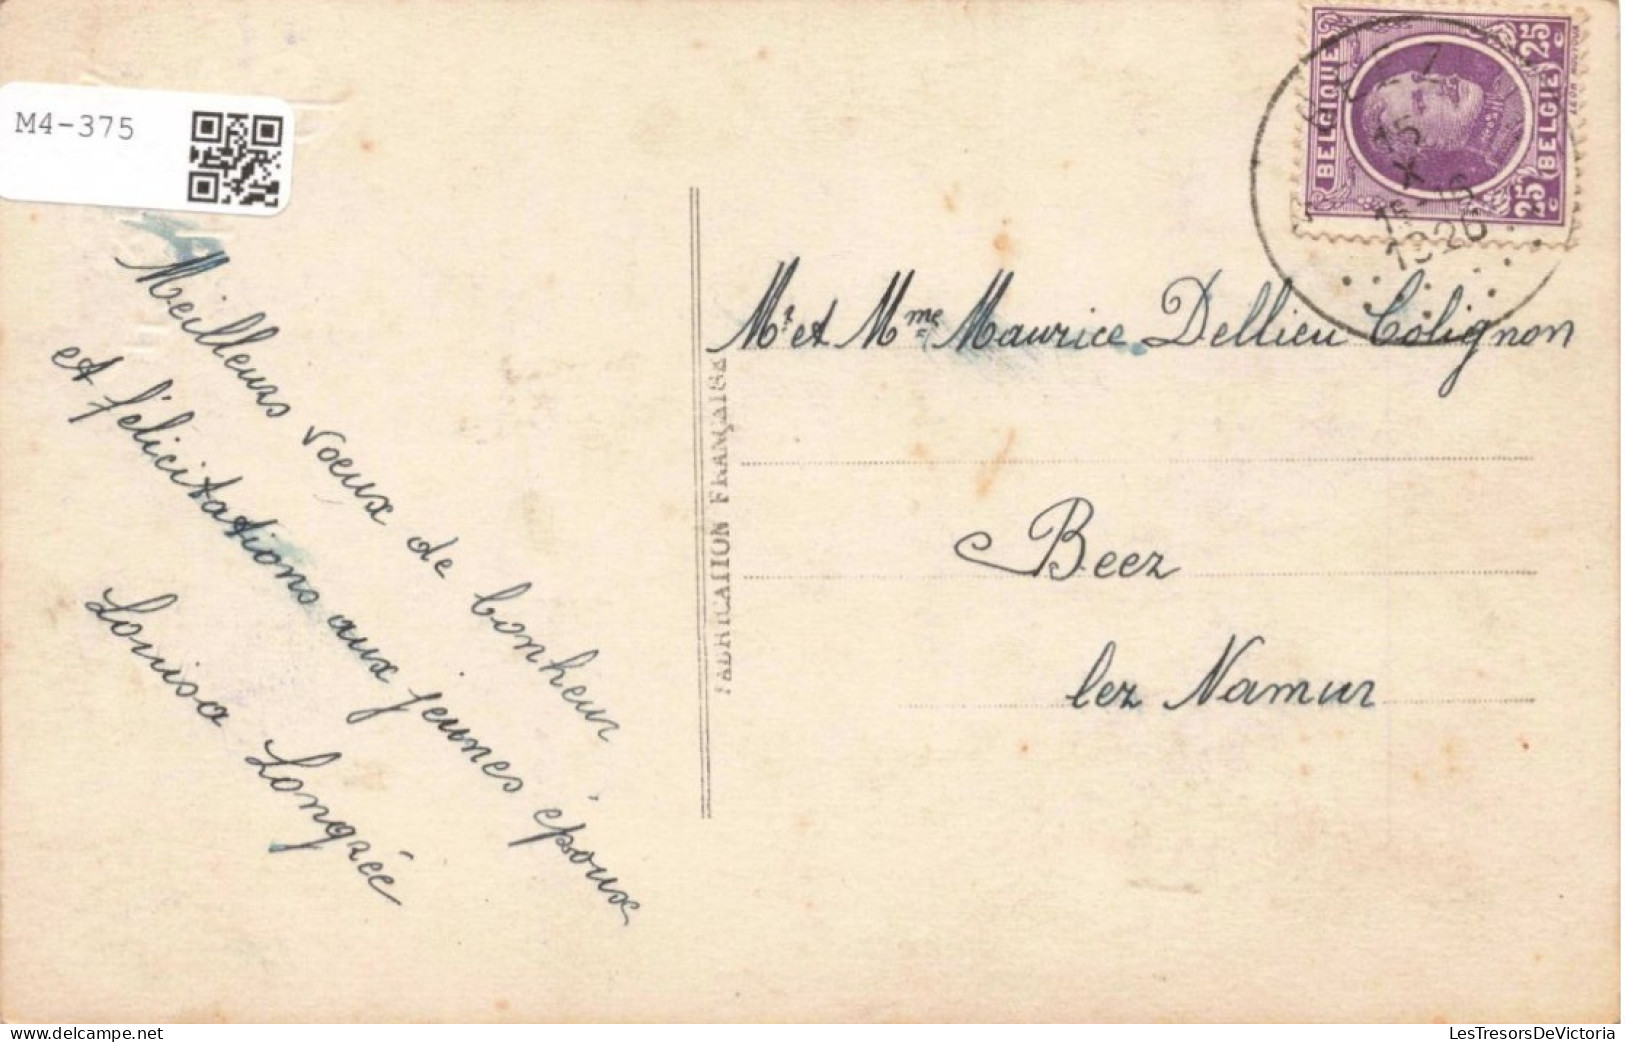 M4-375
Meilleurs voeux de bonheur
et félicitations aux jeunes époux
Louisa Longrée
FABRICATION FRANÇAISE
BELGIQUE
BELGIË
25 c
25 c
15
X
15-16
1926
Mr et Mme Maurice Dellieu Colignon
Beez
lez Namur
LesTresorsDeVictoria